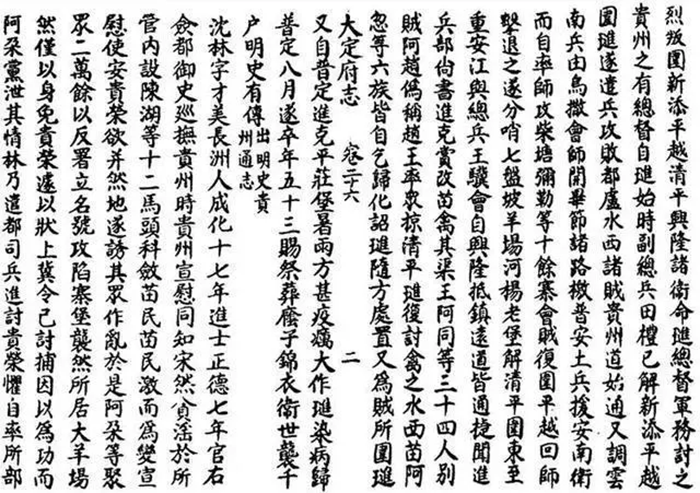 烈叛圍新添平越清平興隆諸衛命璡總督軍務討之
貴州之有總督自璡始時副總兵田禮已解新添平越
圍璡遂遣兵攻敗都盧水西諸賊貴州道始通又調雲
南兵由烏撒會師開畢節諸路檄普安土兵援安南衛
而自率師攻柴塘彌勒等十餘寨會賊復圍平越回師
擊退之遂分哨七盤坡羊場河楊老堡解清平圍東至
重安江與總兵王驥會自興隆抵鎮遠道皆通捷聞進
兵部尚書進克賞改苗禽其渠王阿同等三十四人別
賊阿趙偽稱趙王率眾掠清平璡復討禽之水西苗阿
忽等六族皆自乞歸化詔璡隨方處置又為賊所圍璡
大定府志 卷三十六 二
又自普定進克平莊堡暑雨方甚疫癘大作璡染病歸
普定八月遂卒年五十三賜祭葬廕子錦衣衛世襲千
户明史有傳出明史貴州通志
沈林字才美長洲人成化十七年進士正德七年官右
僉都御史巡撫貴州時貴州宣慰同知宋然貪淫於所
管內設陳湖等十二馬頭科斂苗民苗民激而為變宣
慰使安貴榮欲并然地遂誘其眾作亂於是阿朵等聚
眾二萬餘以反署立名號攻陷寨堡襲然所居大羊場
然僅以身免貴榮遽以狀上冀令己討捕因以為功而
阿朵黨泄其情林乃遣都司兵進討貴榮懼自率所部